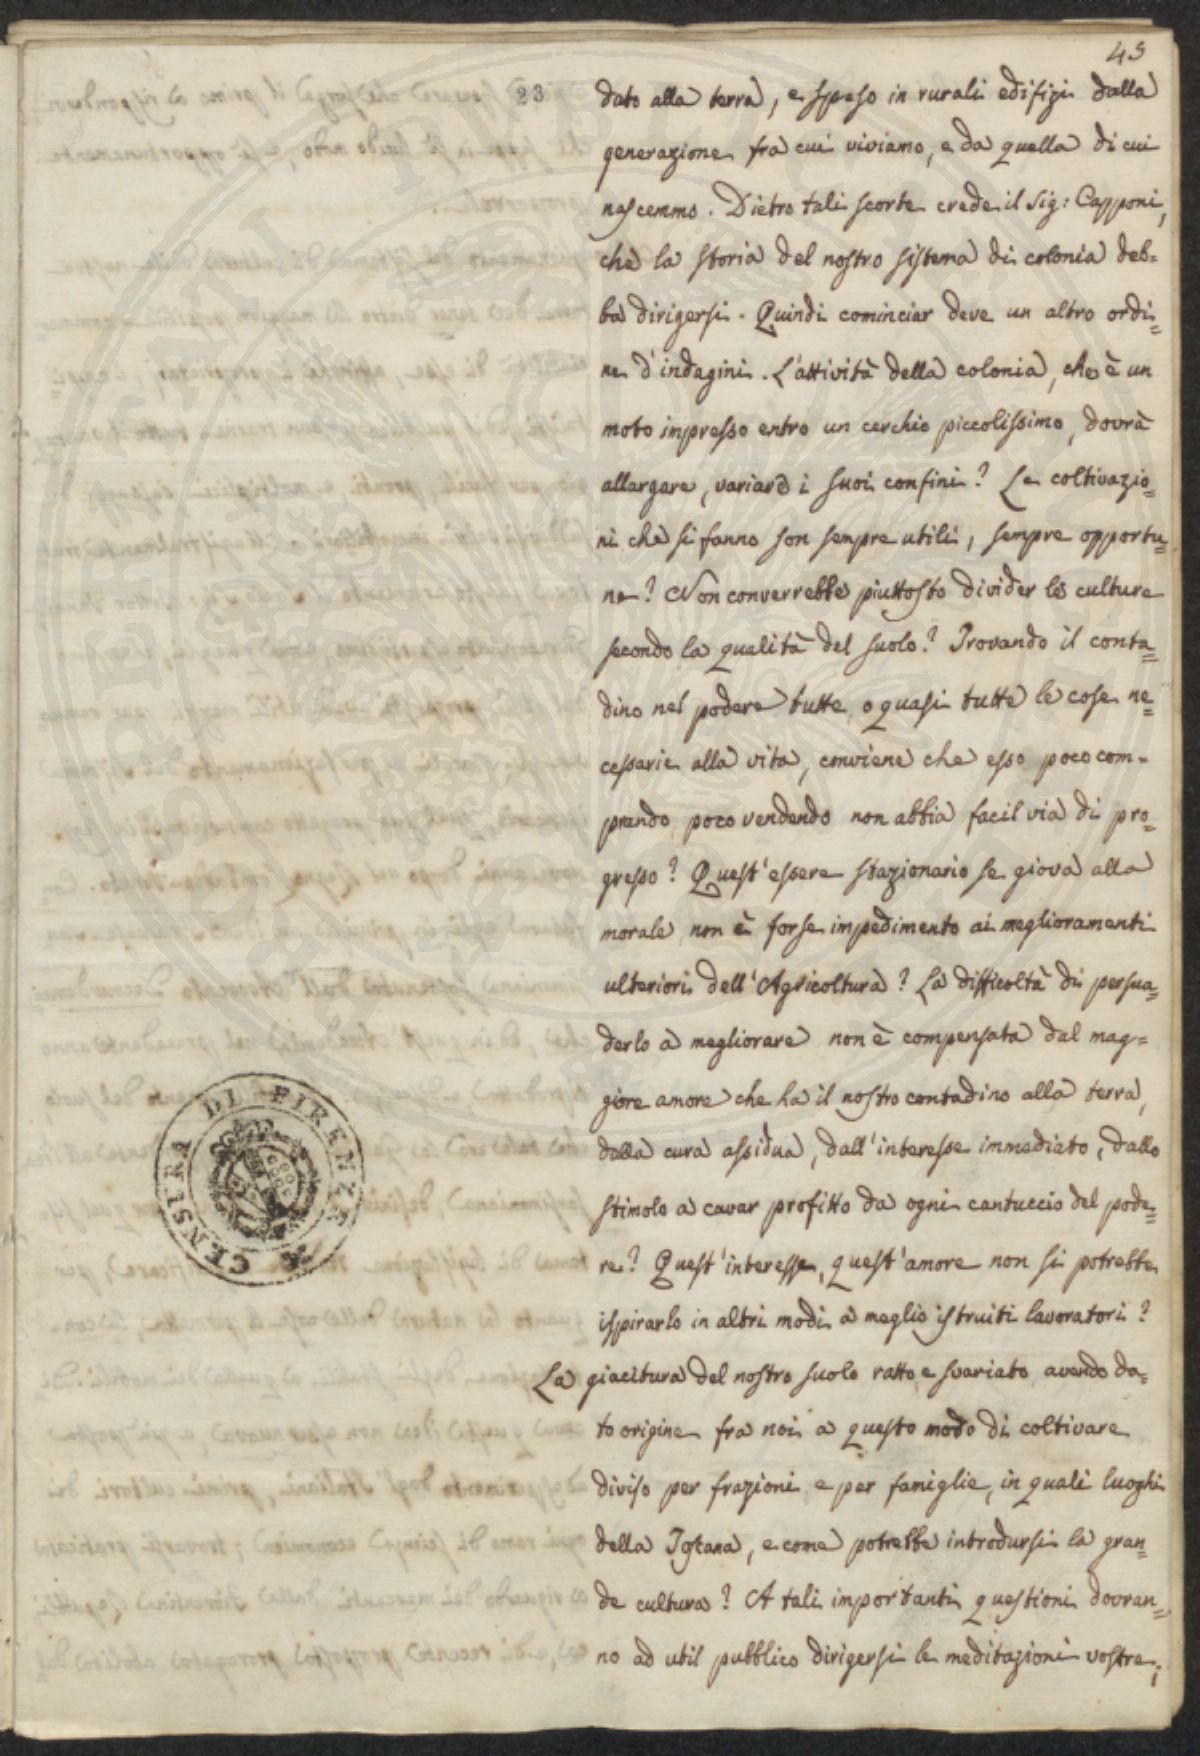 45
23
dato alla terra, e speso in rurali edifizi dalla
generazione fra cui viviamo, e da quella di cui
nascemmo. Dietro tali scorte crede il Sig: Capponi,
che la storia del nostro sistema di colonia deb=
ba dirigersi. Quindi cominciar deve un altro ordi=
ne d'indagini. L'attività della colonia, che è un
moto impresso entro un cerchio piccolissimo, dovrà
allargare, variare i suoi confini? Le coltivazio=
ni che si fanno son sempre utili, sempre opportu=
ne? Non converrebbe piuttosto divider le culture
secondo la qualità del suolo? Trovando il conta=
dino nel podere tutte, o quasi tutte le cose ne=
cessarie alla vita, conviene che esso poco com=
prando, poco vendendo non abbia facil via di pro=
gresso? Quest'essere stazionario se giova alla
morale, non è forse impedimento ai meglioramenti
ulteriori dell'Agricoltura? La difficoltà di persua=
derlo a megliorare non è compensata dal mag=
giore amore che ha il nostro contadino alla terra,
dalla cura assidua, dall'interesse immediato, dallo
stimolo a cavar profitto da ogni cantuccio del pode=
re? Quest'interesse, quest'amore non si potrebbe
ispirarlo in altri modi a meglio istruiti lavoratori?
La giacitura del nostro suolo ratto e svariato avendo da=
to origine fra noi a questo modo di coltivare
diviso per frazioni e per famiglie, in quali luoghi
della Toscana, e come potrebbe introdursi la gran=
de cultura? A tali importanti questioni dovran=
no ad util pubblico dirigersi le meditazioni vostre;
CENSURA DI FIRENZE